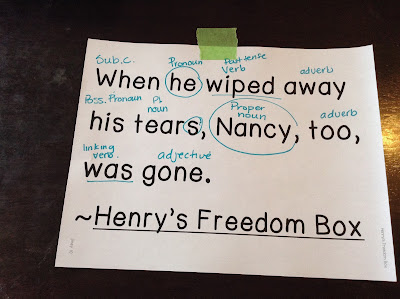 Sub.C. Pronoun Past tense
Verb adverb
When he wiped away
Poss. Pronoun Pl. noun Proper noun adverb
his tears, Nancy, too,
linking verb. adjective
was gone.
~Henry's Freedom Box